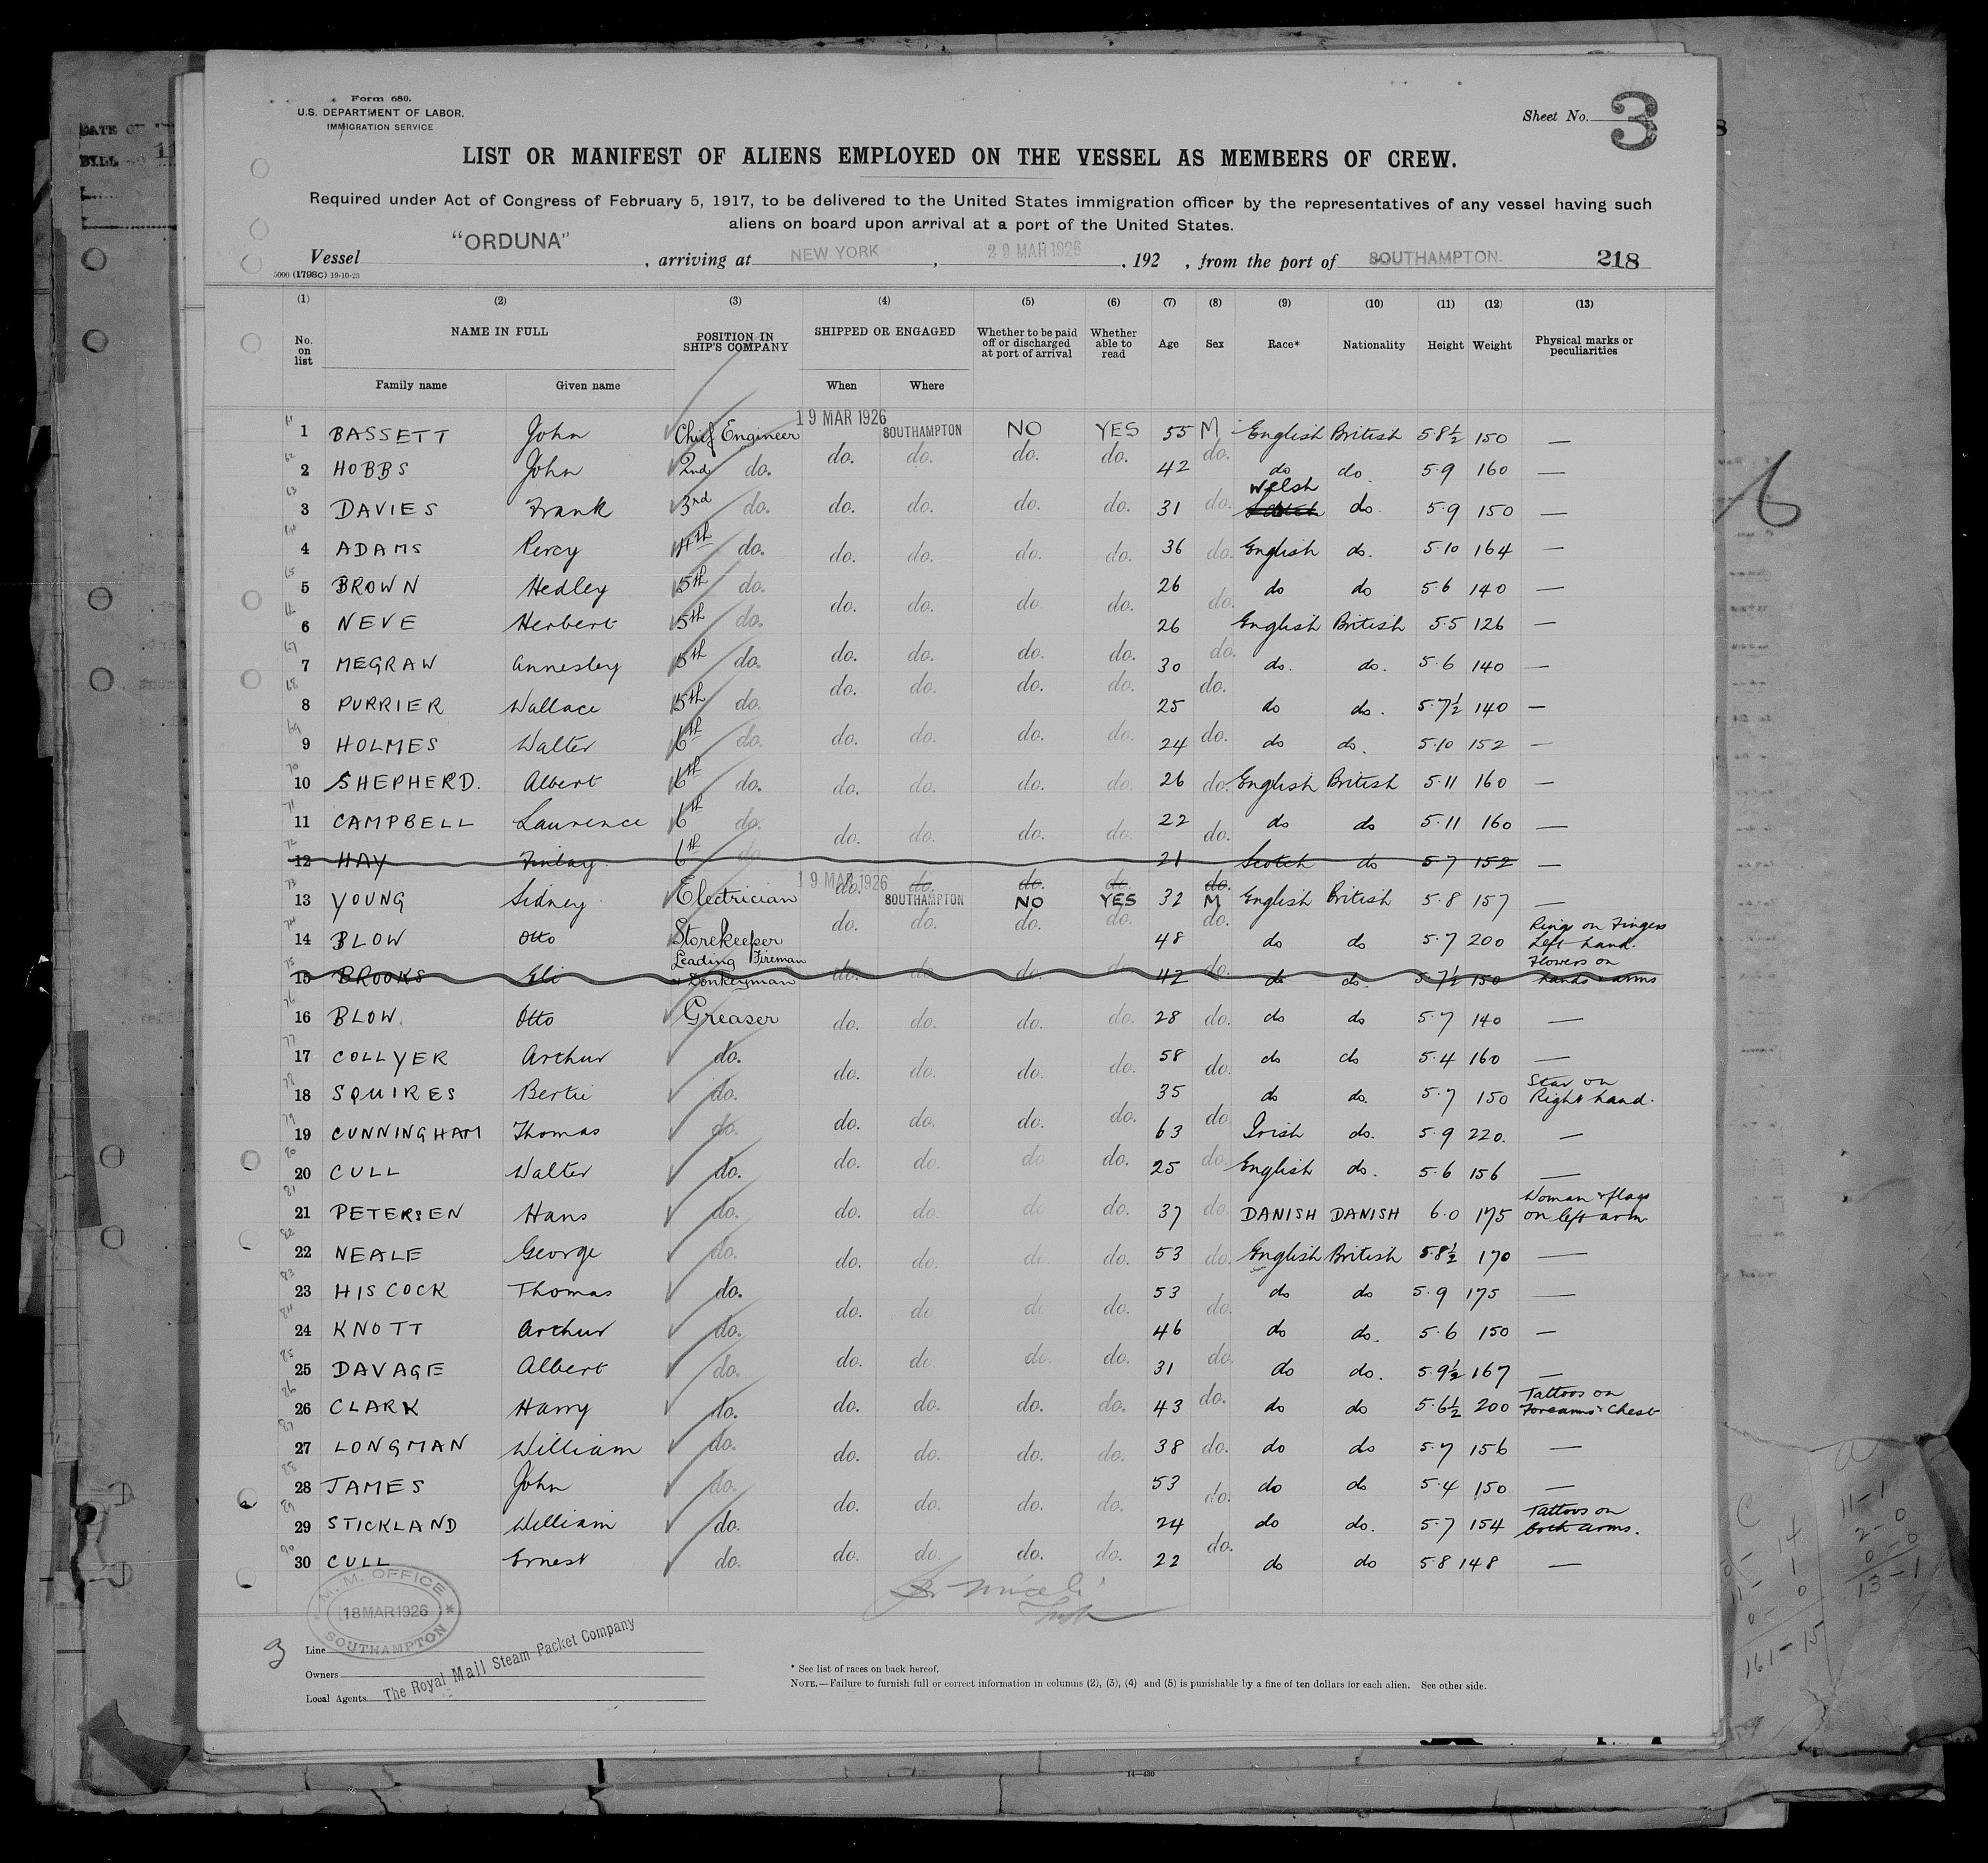 Form 680.
U.S. DEPARTMENT OF LABOR.
IMMIGRATION SERVICE
Sheet No. 3
LIST OR MANIFEST OF ALIENS EMPLOYED ON THE VESSEL AS MEMBERS OF CREW.
Required under Act of Congress of February 5, 1917, to be delivered to the United States immigration officer by the representatives of any vessel having such
aliens on board upon arrival at a port of the United States.
Vessel "ORDUNA", arriving at NEW YORK, 29 MAR 1926, 192 , from the port of SOUTHAMPTON. 218
5000 (1798c) 19-10-23
(1) (2) (3) (4) (5) (6) (7) (8) (9) (10) (11) (12) (13)
No. on list NAME IN FULL POSITION IN SHIP'S COMPANY SHIPPED OR ENGAGED Whether to be paid off or discharged at port of arrival Whether able to read Age Sex Race* Nationality Height Weight Physical marks or peculiarities
Family name Given name When Where
61 1 BASSETT John Chief Engineer 19 MAR 1926 SOUTHAMPTON NO YES 55 M English British 5 8½ 150 —
62 2 HOBBS John 2nd do. do. do. do. do. 42 do. do do 5 9 160 —
63 3 DAVIES Frank 3rd do. do. do. do. do. 31 do. Welsh do. 5 9 150 —
64 4 ADAMS Percy 4th do. do. do. do. do. 36 do. English do. 5 10 164 —
65 5 BROWN Hedley 5th do. do. do. do do. 26 do. do do 5 6 140 —
66 6 NEVE Herbert 5th do. 26 English British 5.5 126 —
67 7 MEGRAW Annesley 5th do. do. do. do. do. 30 do. do. do. 5 6 140 —
68 8 PURRIER Wallace 5th do. do. do. do. do. 25 do. do do. 5.7½ 140 —
69 9 HOLMES Walter 6th do. do. do. do. do. 24 do. do do. 5 10 152 —
70 10 SHEPHERD. Albert 6th do. do. do. do. do. 26 do. English British 5.11 160 —
71 11 CAMPBELL Laurence 6th do. do. do. do. do. 22 do. do do 5.11 160 —
72 12 HAY Finlay. 6th do 21 Scotch do 5 7 152 —
73 13 YOUNG Sidney Electrician 19 MAR 1926 do. SOUTHAMPTON do. NO do. YES do. 32 M do. English British 5.8 157 —
74 14 BLOW Otto Storekeeper do. do. do. do. 48 do. do do 5.7 200 Rings on Fingers Left hand.
75 15 BROOKS Eli Leading Fireman & Donkeyman do. do. do. do. 42 do. do do. 5 7½ 150 Flowers on hands & arms
76 16 BLOW. Otto Greaser do. do. do. do. 28 do. do do 5.7 140 —
77 17 COLLYER Arthur do. do. do. do. do. 58 do. do do 5.4 160 —
78 18 SQUIRES Bertie do. 35 do do. 5.7 150 Star on Right hand.
79 19 CUNNINGHAM Thomas do. do. do. do. do. 63 do. Irish do. 5 9 220. —
80 20 CULL Walter do. do. do. do do. 25 do. English do. 5.6 156 —
81 21 PETERSEN Hans do. do. do. do do. 37 do. DANISH DANISH 6.0 175 Woman & flags on left arm
82 22 NEALE George do. do. do. do do. 53 do. English British 5.8½ 170 —
83 23 HISCOCK Thomas do. do. do do do. 53 do. do do 5.9 175 —
84 24 KNOTT Arthur do. 46 do do. 5.6 150 —
85 25 DAVAGE Albert do. do. do. do. do. 31 do. do do. 5.9½ 167 —
86 26 CLARK Harry do. do. do. do. do. 43 do. do do 5.6½ 200 Tattoos on Forearms & Chest
87 27 LONGMAN William do. do. do. do. do. 38 do. do do 5.7 156 —
88 28 JAMES John do. do. do. do. do. 53 do. do do 5.4 150 —
89 29 STICKLAND William do. 24 do do. 5.7 154 Tattoos on both arms.
90 30 CULL Ernest do. do. do. do. do. 22 do. do do 5 8 148 —
M. M. OFFICE
18 MAR 1926
SOUTHAMPTON
3
Line
Owners The Royal Mail Steam Packet Company
Local Agents
* See list of races on back hereof.
NOTE.—Failure to furnish full or correct information in columns (2), (3), (4) and (5) is punishable by a fine of ten dollars for each alien. See other side.
14—430
11-1
2-0
0-0
13-1
161-15